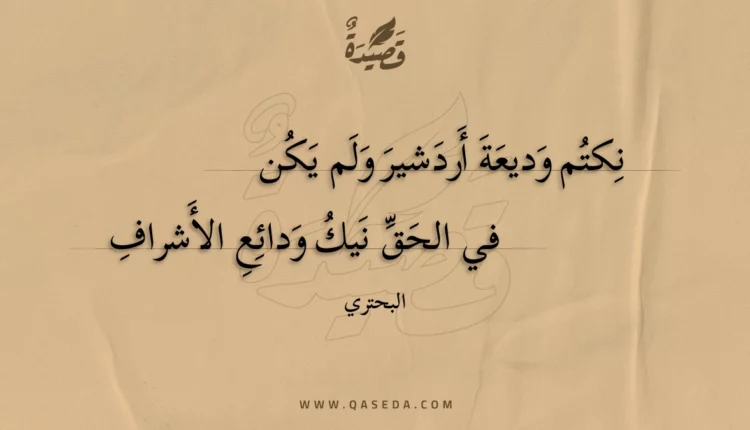 قَصِيْدَةٌ
نِكتُم وَديعَةَ أَردَشيرَ وَلَم يَكُن
في الحَقِّ نَيكُ وَدائِعِ الأَشرافِ
البحتري
WWW.QASEDA.COM